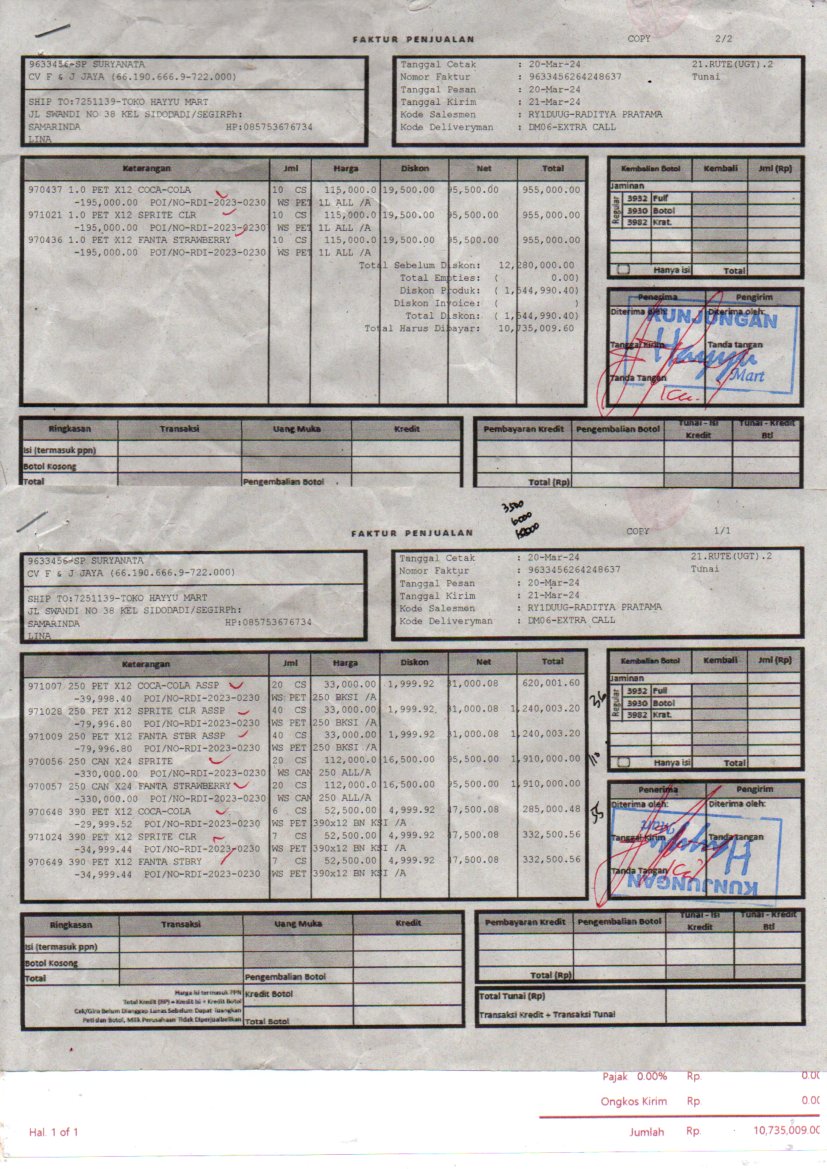 FAKTUR PENJUALAN COPY 2/2
9633456-SP SURYANATA
CV F & J JAYA (66.190.666.9-722.000)
SHIP TO:7251139-TOKO HAYYU MART
JL SWANDI NO 38 KEL SIDODADI/SEGIRPh:
SAMARINDA HP:085753676734
LINA
Tanggal Cetak : 20-Mar-24 21.RUTE(UGT).2
Nomor Faktur : 9633456264248637 Tunai
Tanggal Pesan : 20-Mar-24
Tanggal Kirim : 21-Mar-24
Kode Salesmen : RY1DUUG-RADITYA PRATAMA
Kode Deliveryman : DM06-EXTRA CALL
Keterangan Jml Harga Diskon Net Total
970437 1.0 PET X12 COCA-COLA 10 CS 115,000.0 19,500.00 95,500.00 955,000.00
-195,000.00 POI/NO-RDI-2023-0230 WS PET 1L ALL /A
971021 1.0 PET X12 SPRITE CLR 10 CS 115,000.0 19,500.00 95,500.00 955,000.00
-195,000.00 POI/NO-RDI-2023-0230 WS PET 1L ALL /A
970436 1.0 PET X12 FANTA STRAWBERRY 10 CS 115,000.0 19,500.00 95,500.00 955,000.00
-195,000.00 POI/NO-RDI-2023-0230 WS PET 1L ALL /A
Total Sebelum Diskon: 12,280,000.00
Total Empties: ( 0.00)
Diskon Produk: ( 1,544,990.40)
Diskon Invoice: ( )
Total Diskon: ( 1,544,990.40)
Total Harus Dibayar: 10,735,009.60
Kembalian Botol Kembali Jml (Rp)
Jaminan
Regular
3932 Full
3930 Botol
3982 Krat.
Hanya isi Total
Penerima Pengirim
Diterima oleh: Diterima oleh:
KUNJUNGAN
Tanggal Kirim Tanda tangan
Hayyu
Mart
Tanda Tangan
Ringkasan Transaksi Uang Muka Kredit
Isi (termasuk ppn)
Botol Kosong
Total Pengembalian Botol
Pembayaran Kredit Pengembalian Botol Tunai - Isi Kredit Tunai - Kredit Btl
Total (Rp)
3500
6000
FAKTUR PENJUALAN COPY 1/1
9633456-SP SURYANATA
CV F & J JAYA (66.190.666.9-722.000)
SHIP TO:7251139-TOKO HAYYU MART
JL SWANDI NO 38 KEL SIDODADI/SEGIRPh:
SAMARINDA HP:085753676734
LINA
Tanggal Cetak : 20-Mar-24 21.RUTE(UGT).2
Nomor Faktur : 9633456264248637 Tunai
Tanggal Pesan : 20-Mar-24
Tanggal Kirim : 21-Mar-24
Kode Salesmen : RY1DUUG-RADITYA PRATAMA
Kode Deliveryman : DM06-EXTRA CALL
Keterangan Jml Harga Diskon Net Total
971007 250 PET X12 COCA-COLA ASSP 20 CS 33,000.00 1,999.92 31,000.08 620,001.60
-39,998.40 POI/NO-RDI-2023-0230 WS PET 250 BKSI /A
971028 250 PET X12 SPRITE CLR ASSP 40 CS 33,000.00 1,999.92 31,000.08 1,240,003.20
-79,996.80 POI/NO-RDI-2023-0230 WS PET 250 BKSI /A
971009 250 PET X12 FANTA STBR ASSP 40 CS 33,000.00 1,999.92 31,000.08 1,240,003.20
-79,996.80 POI/NO-RDI-2023-0230 WS PET 250 BKSI /A
970056 250 CAN X24 SPRITE 20 CS 112,000.0 16,500.00 95,500.00 1,910,000.00
-330,000.00 POI/NO-RDI-2023-0230 WS CAN 250 ALL/A
970057 250 CAN X24 FANTA STRAWBERRY 20 CS 112,000.0 16,500.00 95,500.00 1,910,000.00
-330,000.00 POI/NO-RDI-2023-0230 WS CAN 250 ALL/A
970648 390 PET X12 COCA-COLA 6 CS 52,500.00 4,999.92 47,500.08 285,000.48
-29,999.52 POI/NO-RDI-2023-0230 WS PET 390x12 BN KSI /A
971024 390 PET X12 SPRITE CLR 7 CS 52,500.00 4,999.92 47,500.08 332,500.56
-34,999.44 POI/NO-RDI-2023-0230 WS PET 390x12 BN KSI /A
970649 390 PET X12 FANTA STBRY 7 CS 52,500.00 4,999.92 47,500.08 332,500.56
-34,999.44 POI/NO-RDI-2023-0230 WS PET 390x12 BN KSI /A
36
110
55
Kembalian Botol Kembali Jml (Rp)
Jaminan
Regular
3932 Full
3930 Botol
3982 Krat.
Hanya isi Total
Penerima Pengirim
Diterima oleh: Diterima oleh:
Tanggal Kirim Tanda tangan
Tanda Tangan
KUNJUNGAN
Ringkasan Transaksi Uang Muka Kredit
Isi (termasuk ppn)
Botol Kosong
Total Pengembalian Botol
Harga Isi termasuk PPN Kredit Botol
Total Kredit (RP) = Kredit Isi + Kredit Botol
Cek/Giro Belum Dianggap Lunas Sebelum Dapat Tuangkan
Peti dan Botol, Milik Perusahaan Tidak Diperjualbelikan Total Botol
Pembayaran Kredit Pengembalian Botol Tunai - Isi Kredit Tunai - Kredit Btl
Total (Rp)
Total Tunai (Rp)
Transaksi Kredit + Transaksi Tunai
Pajak 0.00% Rp. 0.00
Ongkos Kirim Rp. 0.00
Hal. 1 of 1 Jumlah Rp. 10,735,009.00